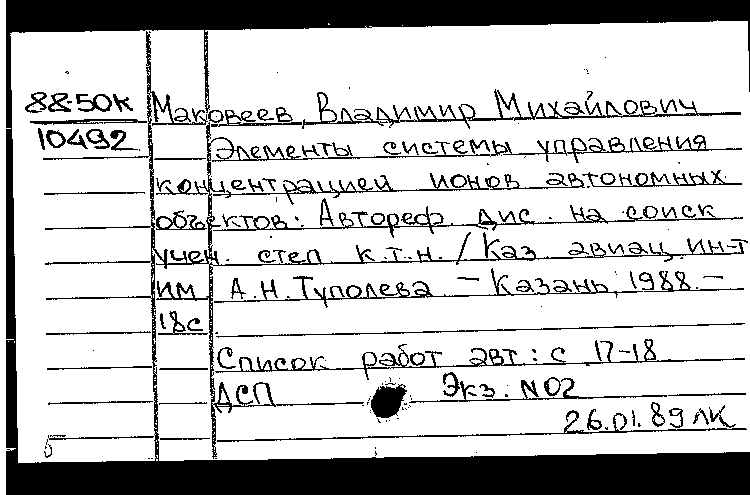 88-50К Маковеев, Владимир Михайлович
10492
Элементы системы управления
концентрацией ионов автономных
объектов: Автореф. дис. на соиск
учен. степ к.т.н. / Каз авиац. ин-т
им А.Н. Туполева — Казань, 1988. —
18с
Список работ авт: с 17-18
ДСП Экз. N02
26.01.89 ЛК
5